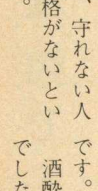 、守れない人
格がないとい
です。
酒酔
でした